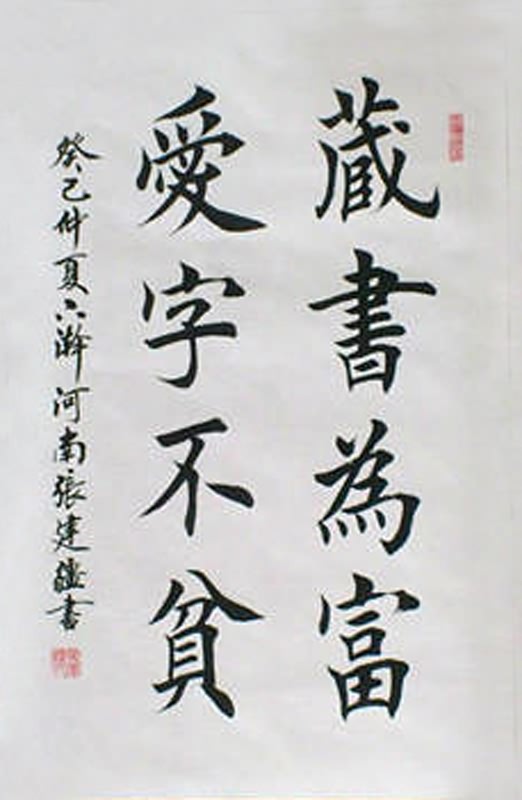 蔵書為富
愛字不貧
癸己仲夏六澣河南張建書